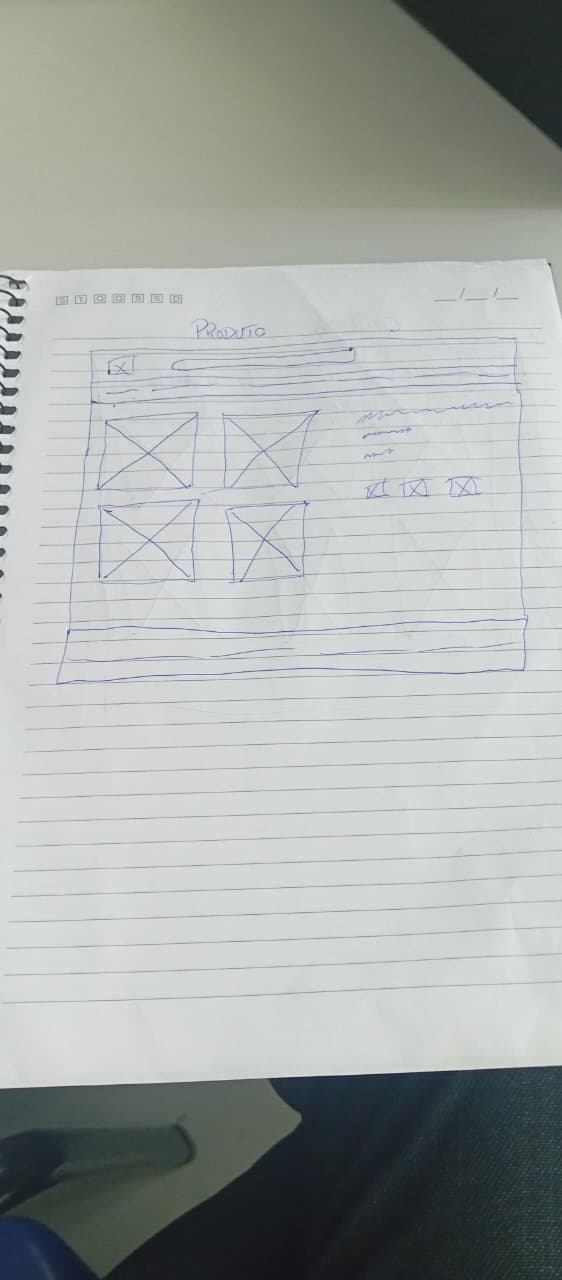 S T Q Q S S D
__/__/__
PRODUTO